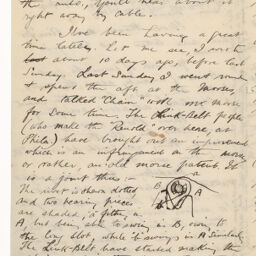 the mail, you'll hear about it
right away by cable.
I've been having a great
time lately. Let me see, I wrote
last about 10 days ago, before last
Sunday. Last Sunday I went round
& spent the aft. at the Morses,
and talked "chain" with once more
for some time. The Link-Belt people
(who make the Renold over here, at
Phila) have brought out an improvement
which is an improvement on the morse
or rather, an old morse patent. It
is a joint this:-
The rivet is shown dotted
and two bearing pieces
are shaded, a fitting in
A, but being able to swing in B, owing to
the long slot, while b swings in A similarly
The Link-Belt have started making the
B
A